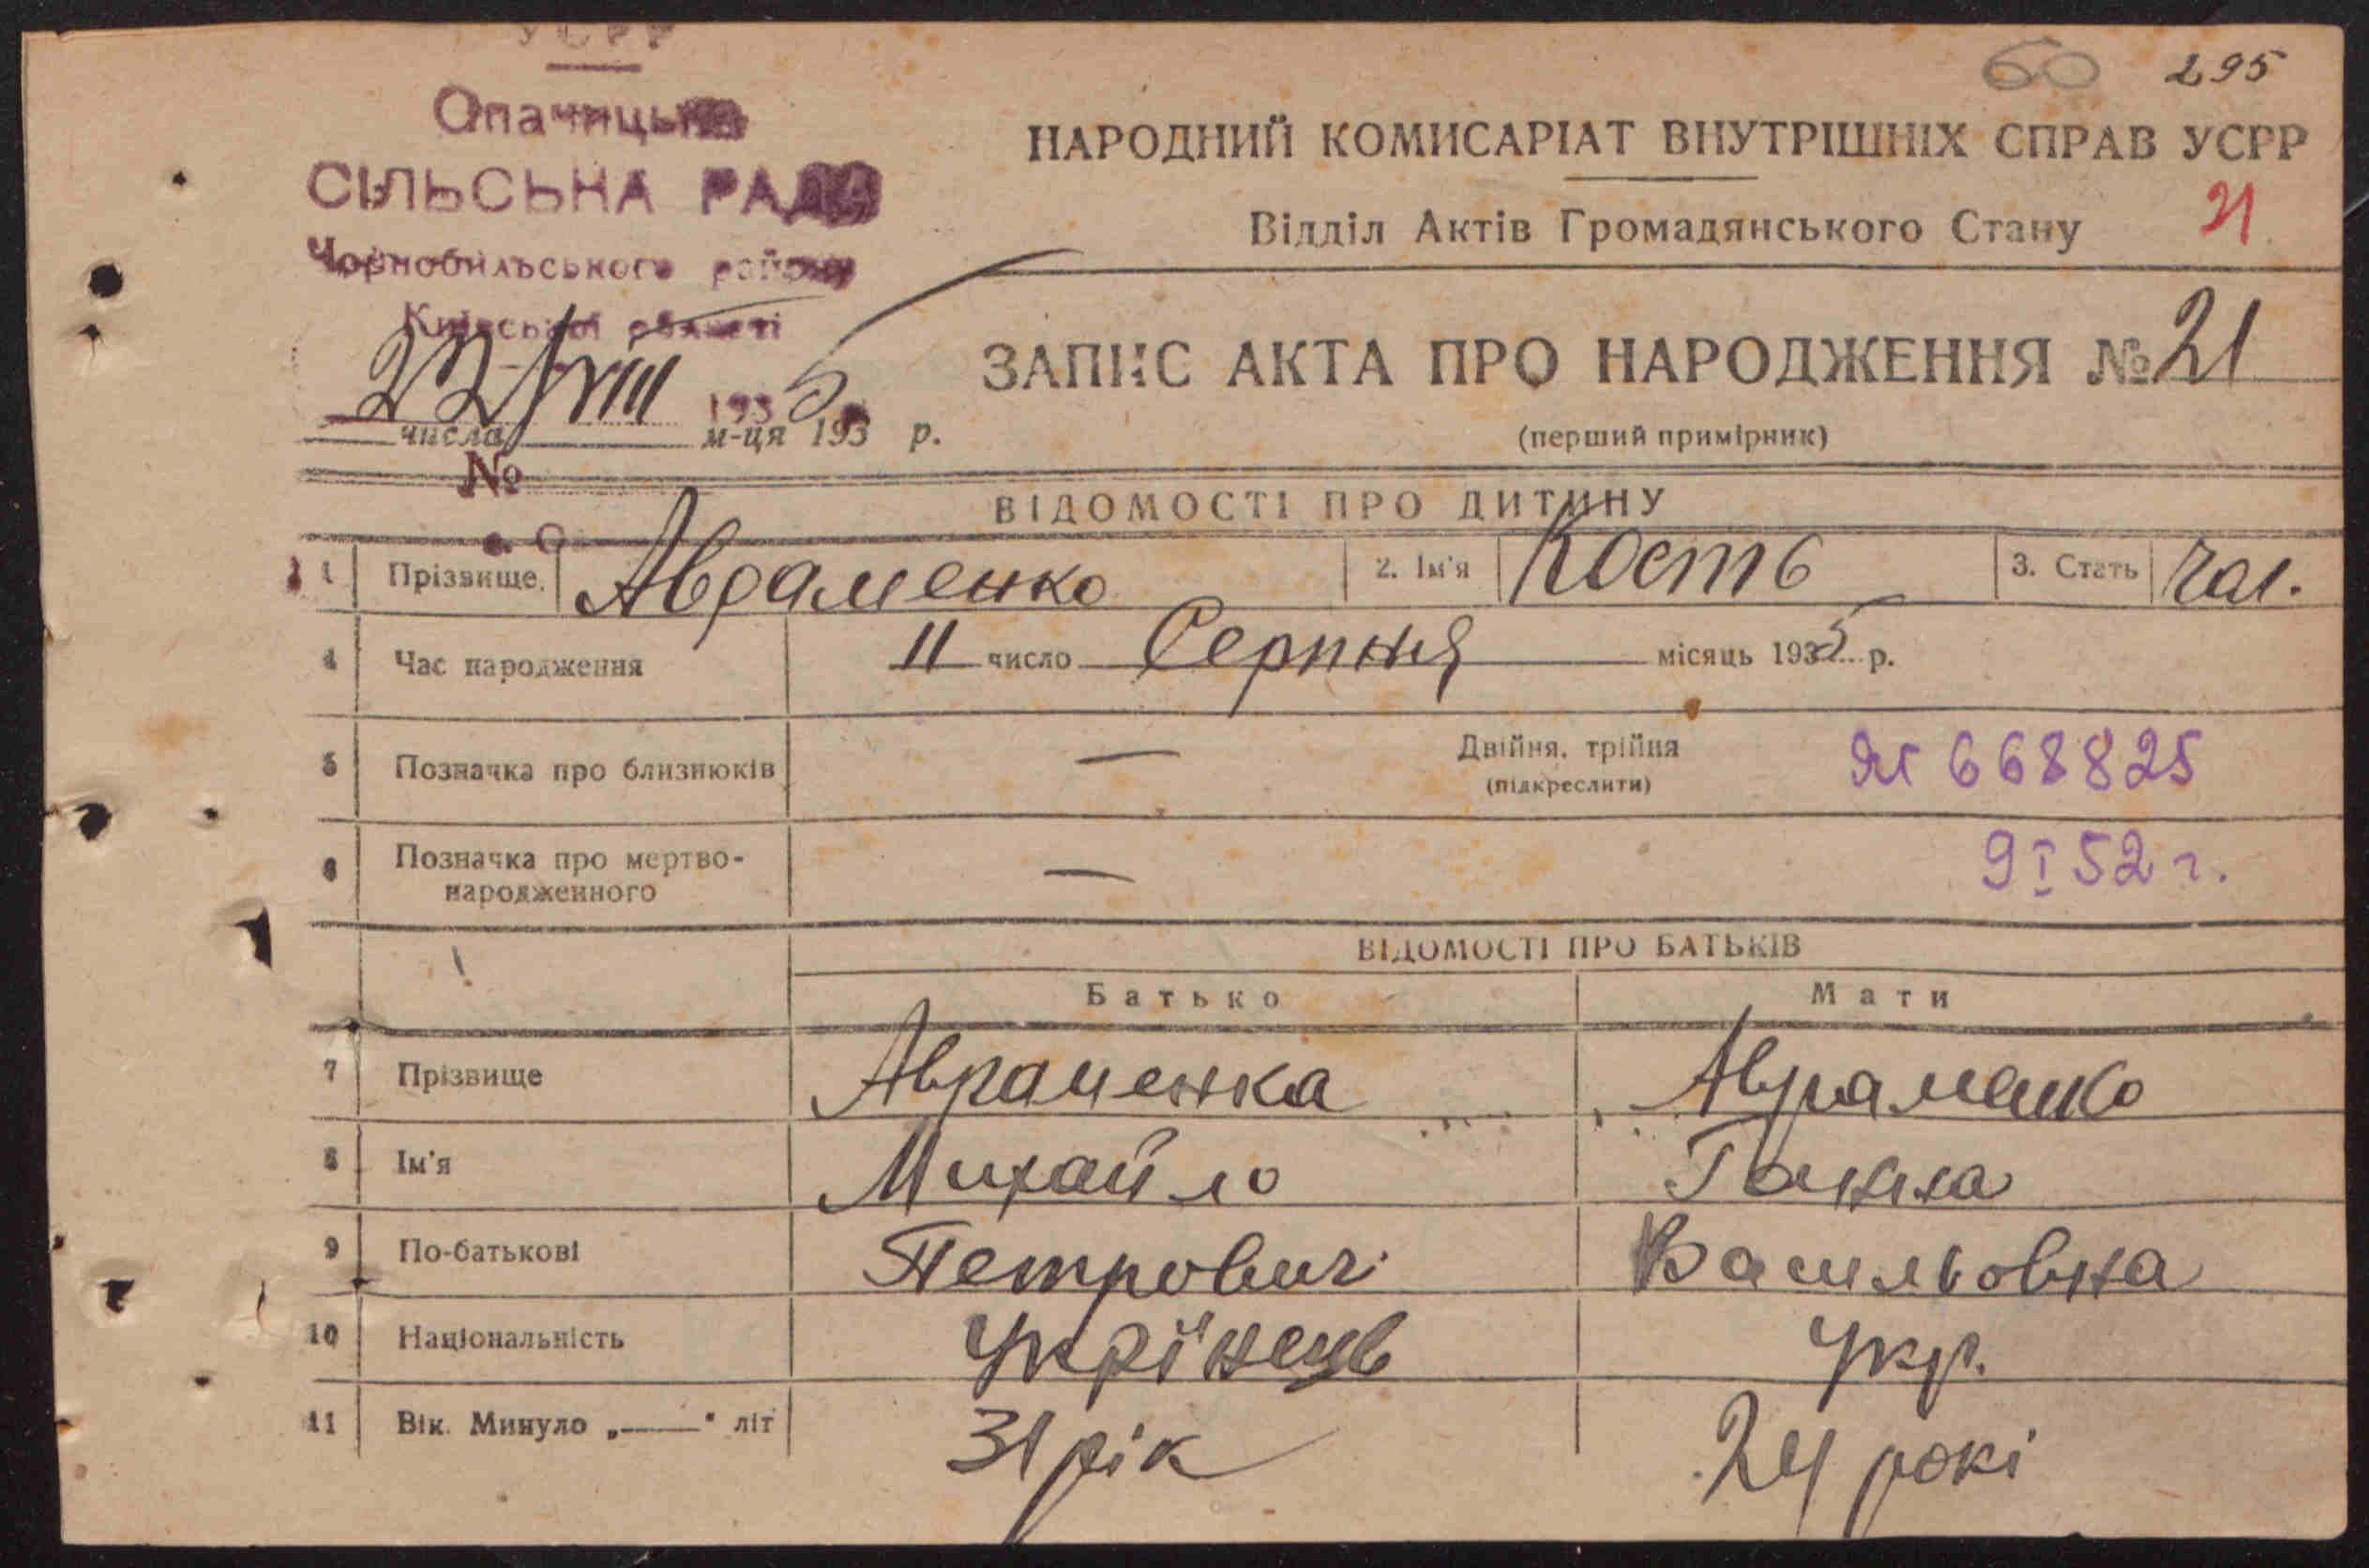 УСРР
60 295
Опачицька
СІЛЬСЬКА РАДА
Чорнобильського району
Київської області
22/VIII 1935
числа м-ця 193 р.
№
НАРОДНИЙ КОМИСАРІАТ ВНУТРІШНІХ СПРАВ УСРР
Відділ Актів Громадянського Стану 21
ЗАПИС АКТА ПРО НАРОДЖЕННЯ № 21
(перший примірник)
ВІДОМОСТІ ПРО ДИТИНУ
1 Прізвище Авраменко 2. Ім'я Кость 3. Стать Чол.
4 Час народження 11 число Серпня місяць 1935 р.
5 Позначка про близнюків — Двійня, трійня
(підкреслити)
ЯГ 668825
6 Позначка про мертво-
народженного —
9 I 52 г.
ВІДОМОСТІ ПРО БАТЬКІВ
Батько Мати
7 Прізвище Авраменка Авраменко
8 Ім'я Михайло Ганна
9 По-батькові Петрович Васильовна
10 Національність Укрїнець Укр.
11 Вік. Минуло „——" літ 31 рік 24 рокі